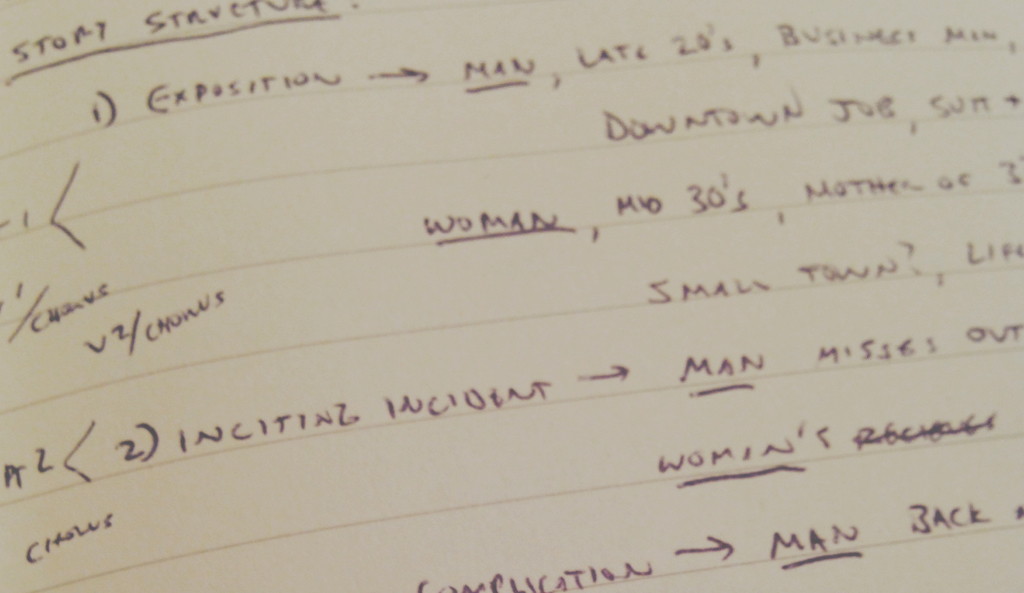 STORY STRUCTURE.
1) EXPOSITION → MAN, LATE 20's, BUSINESS MAN,
DOWNTOWN JOB, SUIT +
-1 <
WOMAN, MID 30's, MOTHER OF 3
SMALL TOWN?, LIFE
1/CHORUS
V2/CHORUS
A2 < 2) INCITING INCIDENT → MAN MISSES OUT
WOMAN'S
CHORUS
COMPLICATION → MAN BACK